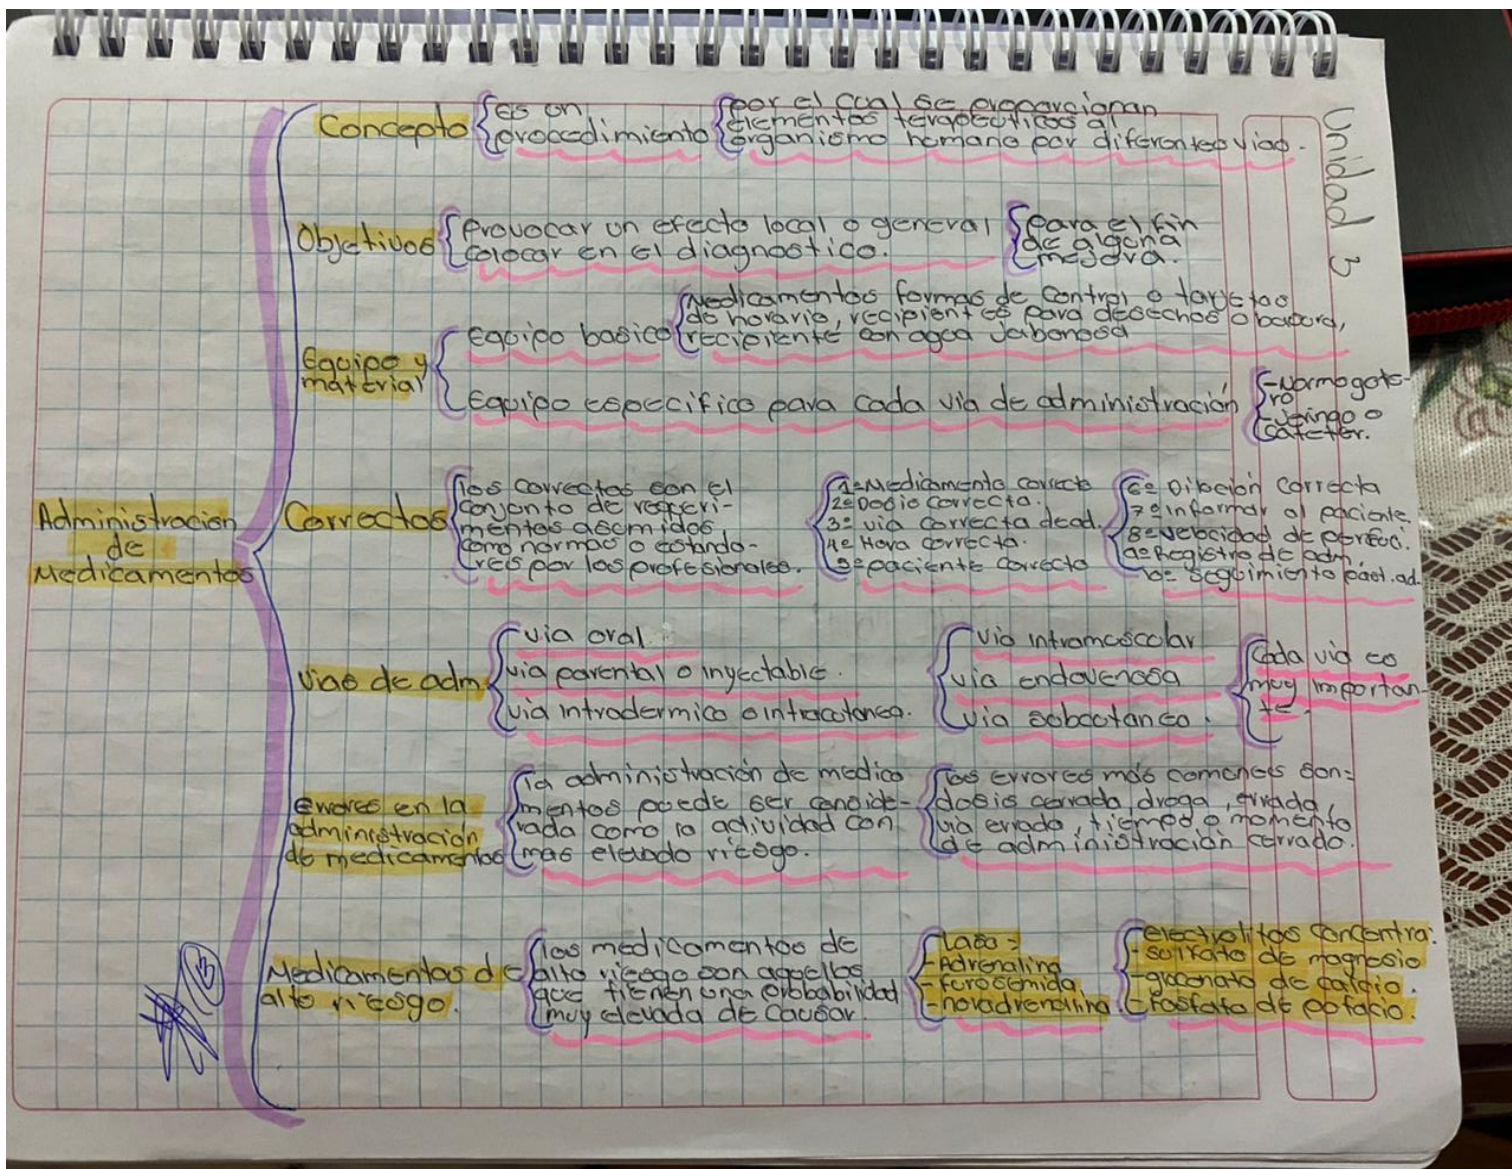 Unidad 3
Administracion
de
Medicamentos
Concepto
es un
procedimiento
por el cual se proporcionan
elementos terapeuticos al
organismo humano por diferentes vias.
Objetivos
Provocar un efecto local o general
colocar en el diagnostico.
para el fin
de alguna
mejora.
Equipo y
material
Equipo basico
Medicamentos formas de control o tarjetas
de horario, recipientes para desechos o basura,
recipiente con agua jabonosa
Equipo especifico para cada via de administración
-Normogote-
ro
-Jeringa o
cateter.
Correctos
los correctos son el
conjunto de requeri-
mentos asumidos
como normas o estanda-
res por los profesionales.
1=Medicamento correcto
2=Dosis correcta.
3= via correcta de ad.
4= Hora correcta.
5= paciente correcto
6= Dilucion correcta
7= informar al paciente
8= velocidad de
9= Registro de adm.
10= seguimiento ad.
Vias de adm
via oral
via parental o inyectable.
via intradermica o intracutanea.
via intramuscular
via endovenosa
via subcutanea.
Cada via es
muy importan-
te.
errores en la
administracion
de medicamentos
la administración de medica
mentos puede ser conside-
rada como la actividad con
mas elevado riesgo.
los errores más comunes son=
dosis errada, droga, errada,
via errada, tiempo o momento
de administración errado.
Medicamentos de
alto riesgo.
los medicamentos de
alto riesgo son aquellos
que tienen una probabilidad
muy elevada de causar.
-Adrenalina
-furosemida
-noradrenalina.
electrolitos concentra.
-sulfato de magnesio
-gluconato de calcio.
-fosfato de potacio.